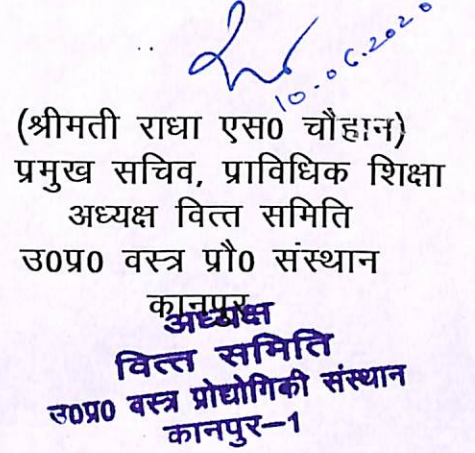 10.06.2020
(श्रीमती राधा एस0 चौहान)
प्रमुख सचिव, प्राविधिक शिक्षा
अध्यक्ष वित्त समिति
उ0प्र0 वस्त्र प्रौ0 संस्थान
कानपुर
अध्यक्ष
वित्त समिति
उ0प्र0 वस्त्र प्रोद्योगिकी संस्थान
कानपुर–1